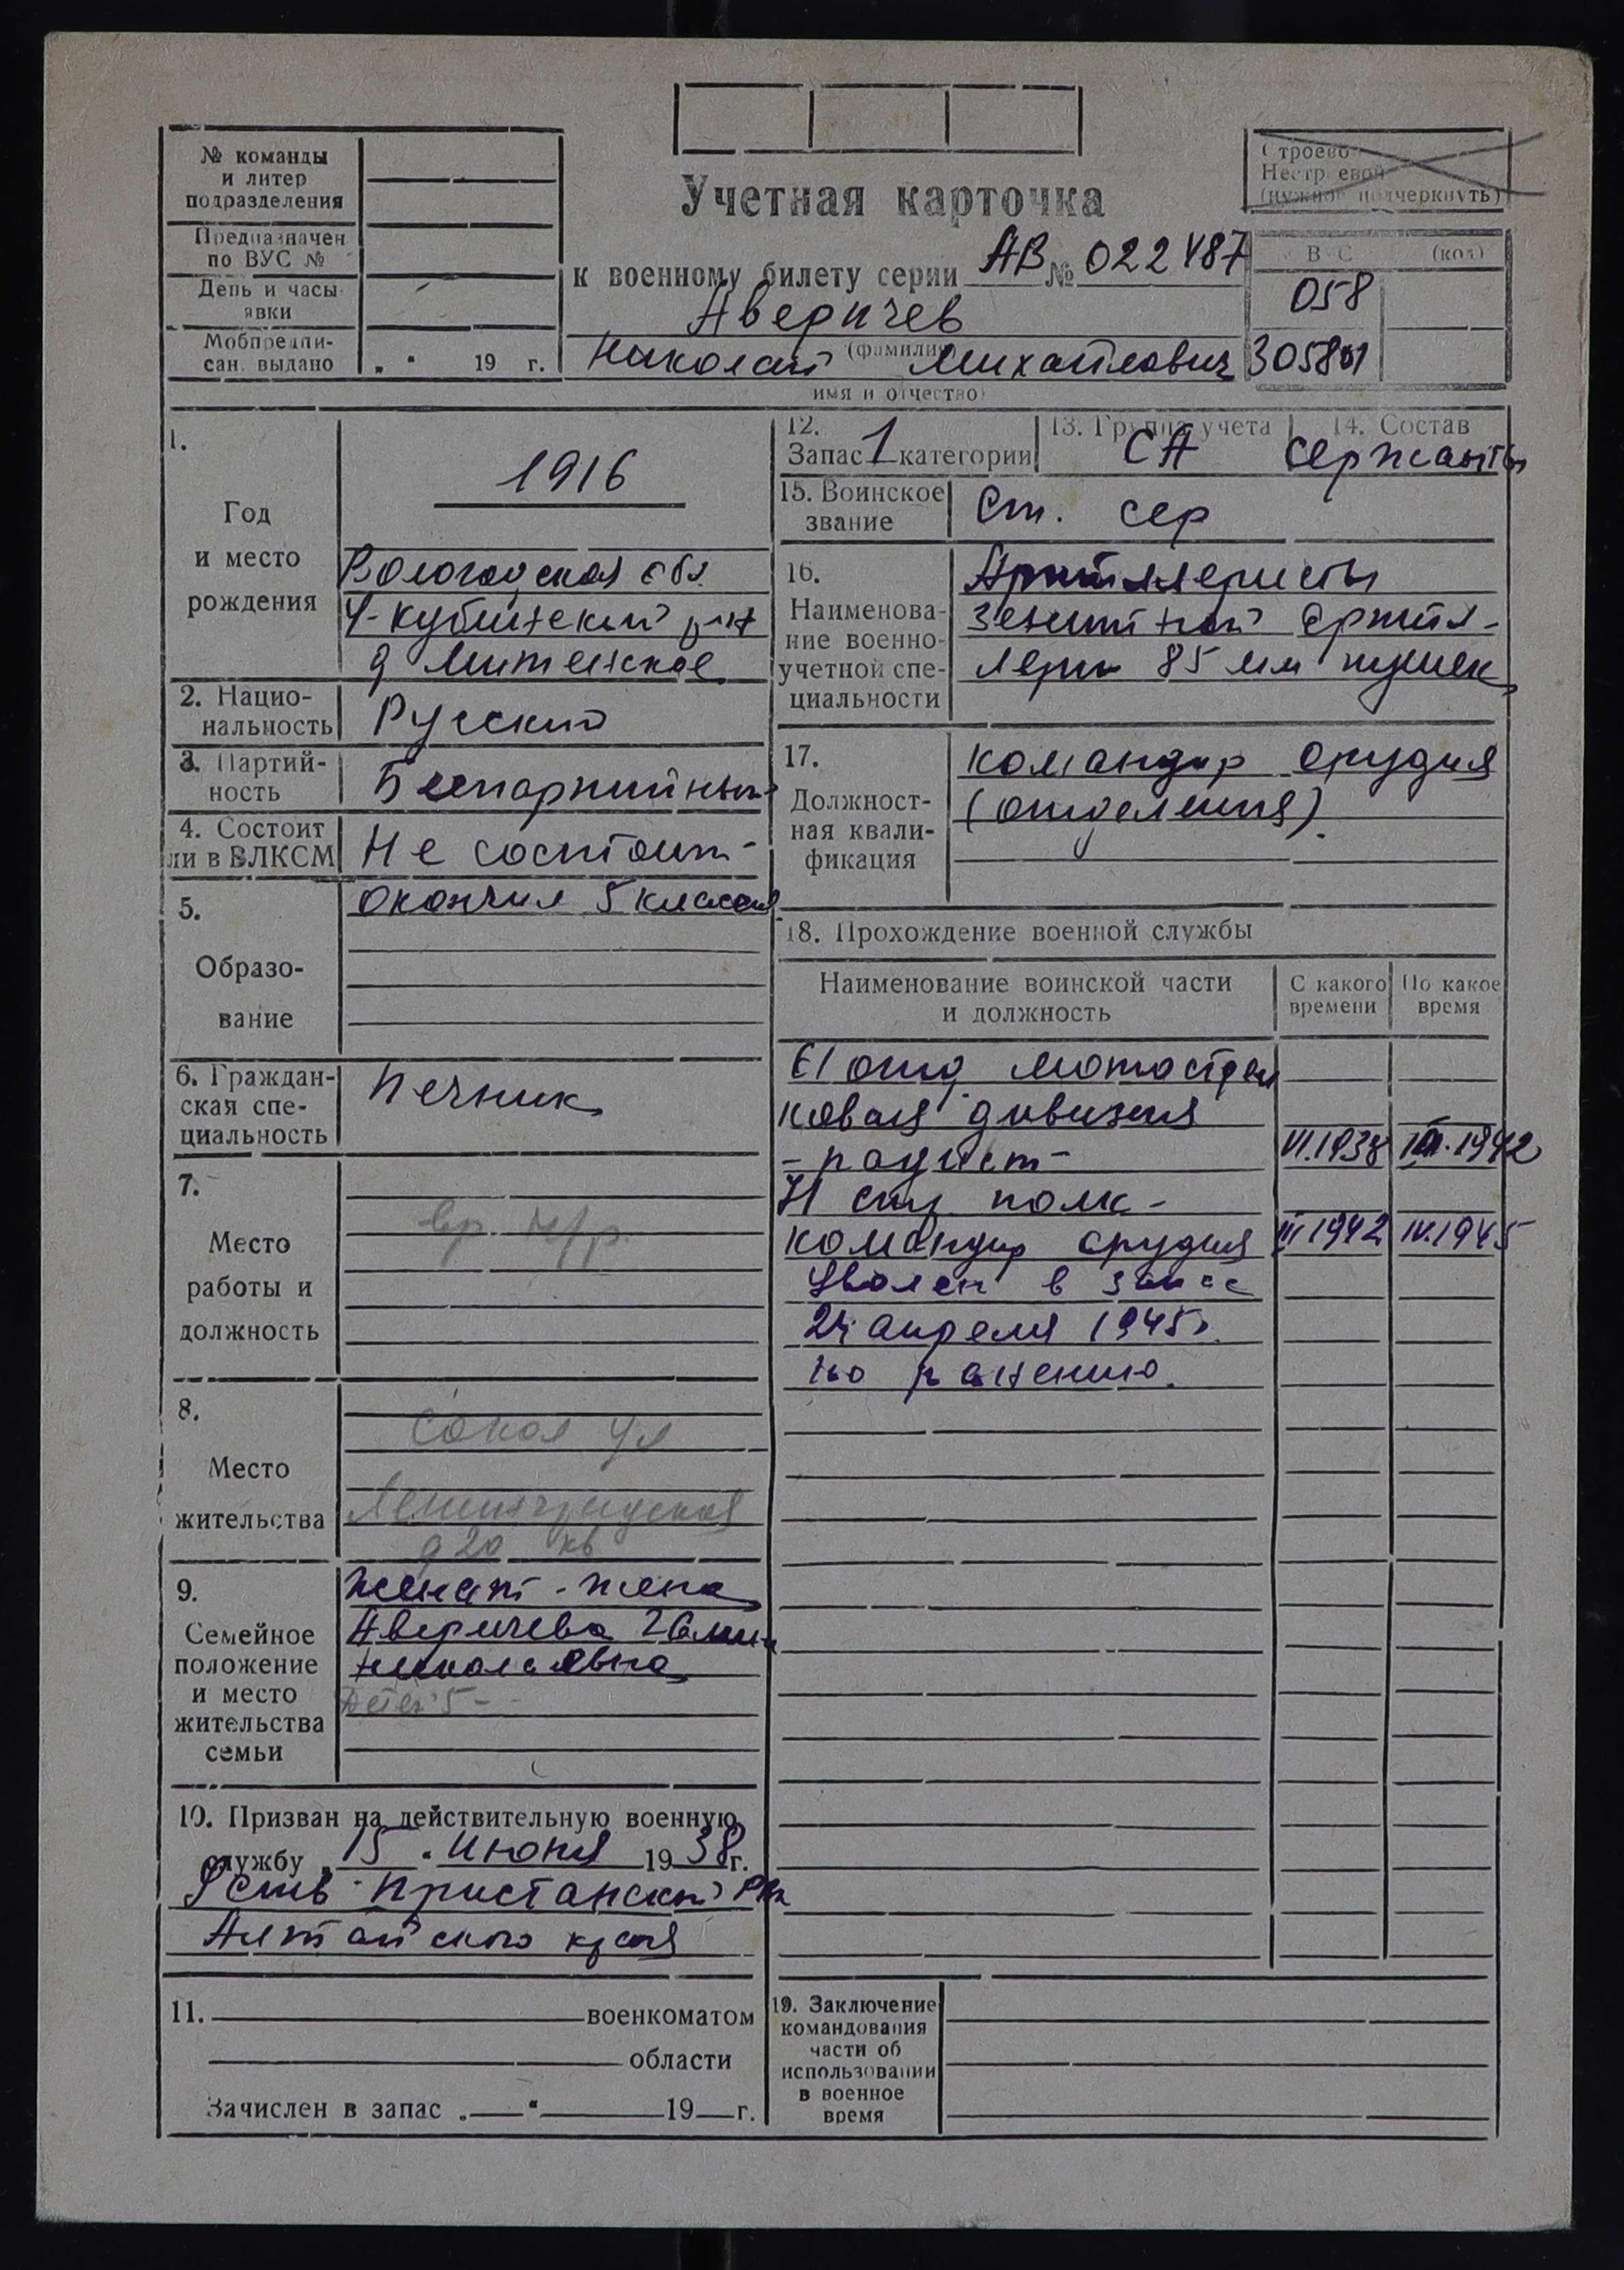 № команды
и литер
подразделения
Предназначен
по ВУС №
День и часы
явки
Мобпредпи-
сан. выдано „ “ 19 г.
Учетная карточка
к военному билету серии АВ № 022487
Аверичев
(фамилия
Николай Михайлович
имя и отчество)
Строевой
Нестроевой
(нужное подчеркнуть)
ВУС (код)
058
1.
Год
и место
рождения
1916
Вологодская обл
У-Кубинский р-н
д Митенское
2. Нацио-
нальность Русский
3. Партий-
ность Беспартийный
4. Состоит
ли в ВЛКСМ Не состоит
5.
Образо-
вание
окончил 5 классов
6. Граждан-
ская спе-
циальность
Печник
7.
Место
работы и
должность
вр. н/р.
8.
Место
жительства
Сокол ул
Ленинградская
д 20 кв
9.
Семейное
положение
и место
жительства
семьи
Женат - жена
Аверичева
Николаевна
Детей 5 -
10. Призван на действительную военную
службу „15“ Июня 1938 г.
Усть-Пристанский РВК
Алтайского края
11. военкоматом
области
Зачислен в запас „ “ 19 г.
12.
Запас 1 категории
13. Группа учета
СА
14. Состав
Сержанты
15. Воинское
звание
Ст. сер
16.
Наименова-
ние военно-
учетной спе-
циальности
Артиллеристы
зенитной артил-
лери 85 мм пушек
17.
Должност-
ная квали-
фикация
командир орудия
(отделения).
18. Прохождение военной службы
Наименование воинской части
и должность
С какого
времени
По какое
время
61 отд мотострел
ковая дивизия
- радист - VI.1938 III.1942
71 стр полк -
командир орудия III 1942 IV.1945
Уволен в запас
24 апреля 1945г.
по ранению.
19. Заключение
командования
части об
использовании
в военное
время